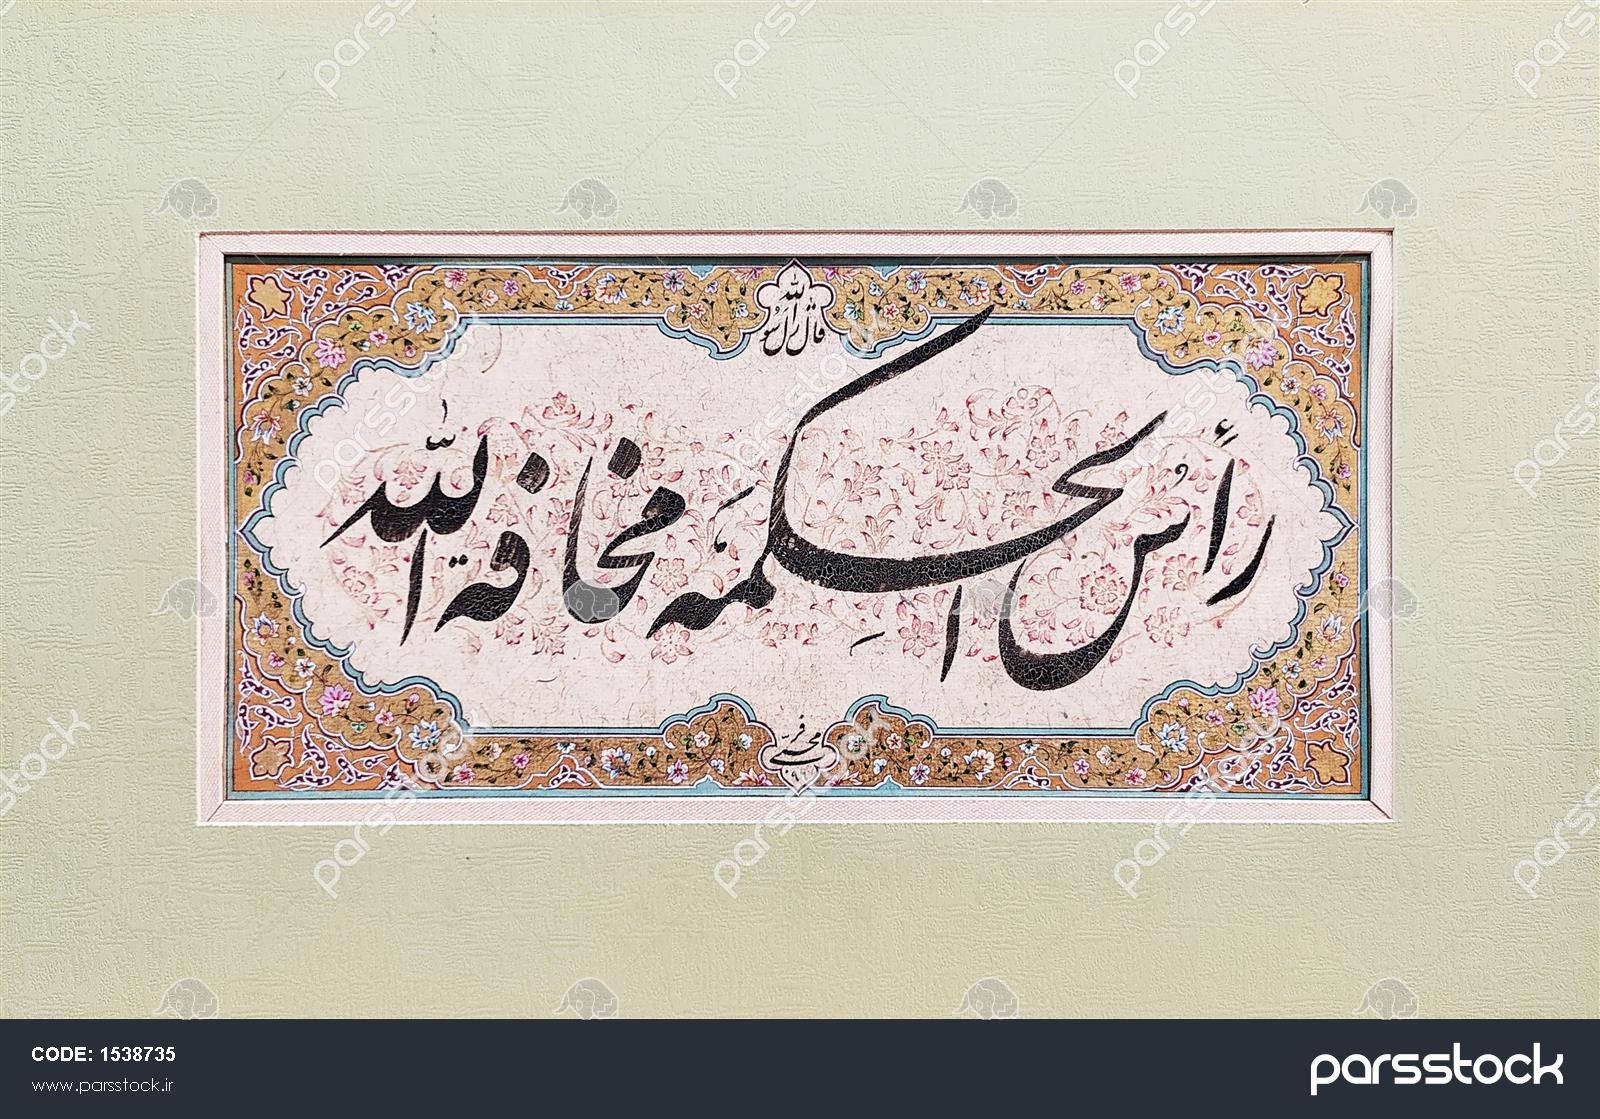 قال رسول الله
رأسُ الحکِمه مخافه الله
مجتبی فر
CODE: 1538735
www.parsstock.ir
parsstock